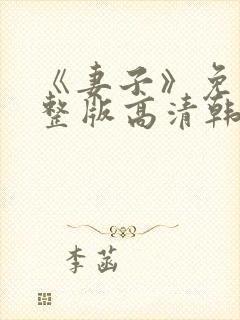 《妻子》免
整版高清韩
李菡